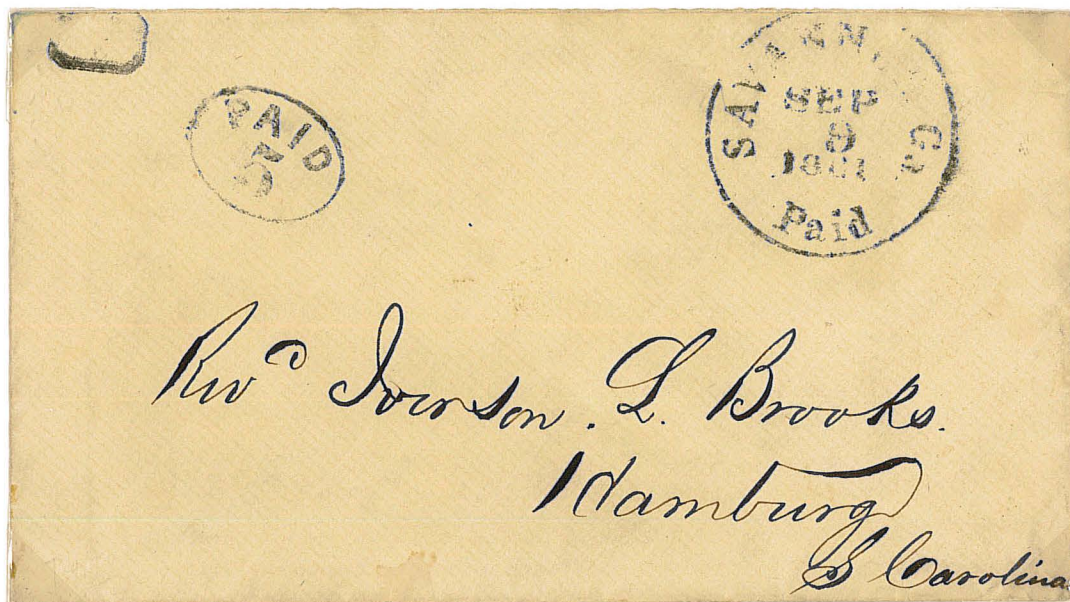 PAID
5
SAVANNAH Ga
SEP
9
1861
Paid
Revd Iverson. L. Brooks.
Hamburg
S Carolina